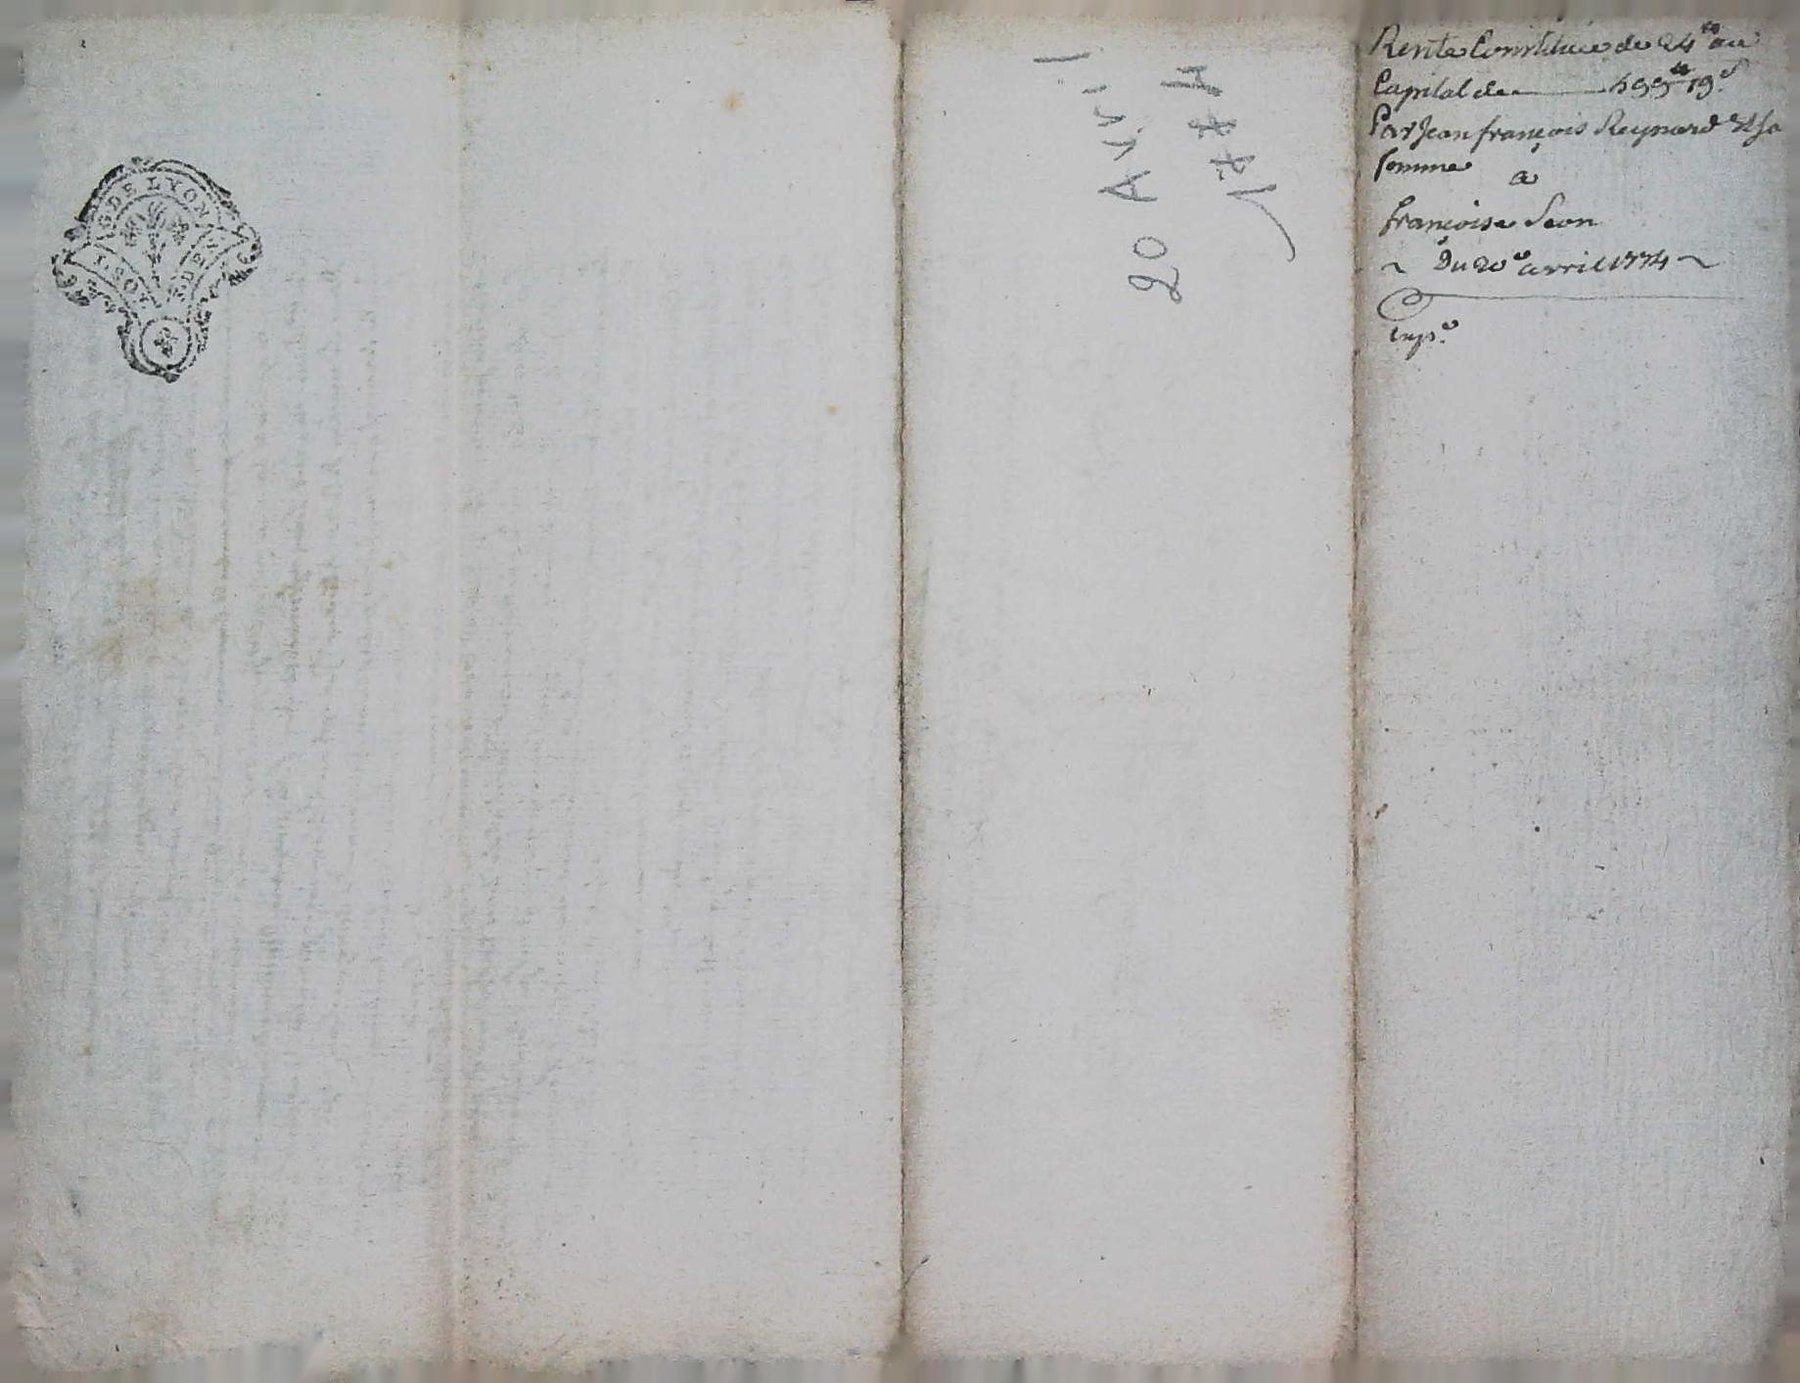 G. DE LYON
20 Avril
1774
Rente Constituée de 24ᵗᵗ au
Capital de 499ᵗᵗ 19ˢ
Par Jean françois Reynard et sa
femme
a
françoise Séon
~ Du 20ᵉ avril 1774 ~
exp.ᵉ